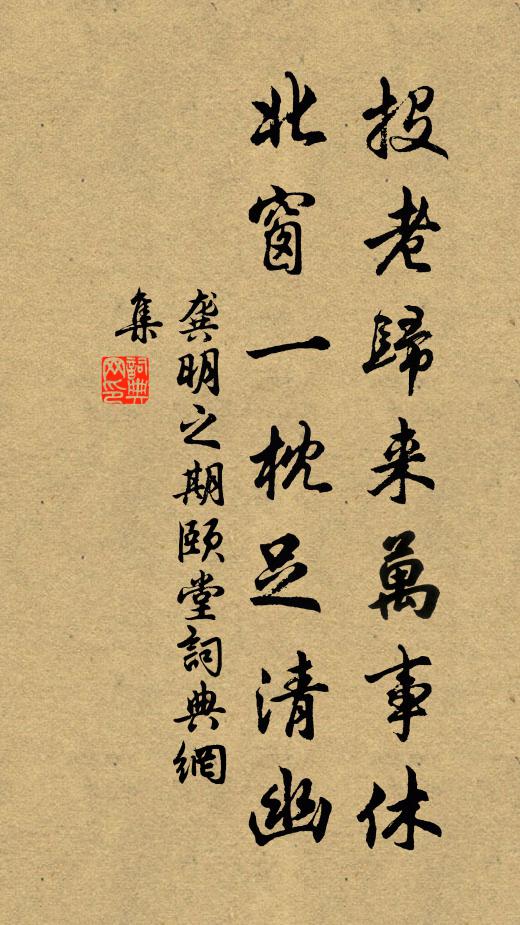 投老歸来萬事休
北窗一枕足清幽
龚明之期頤堂詞典網
集
詞典網印